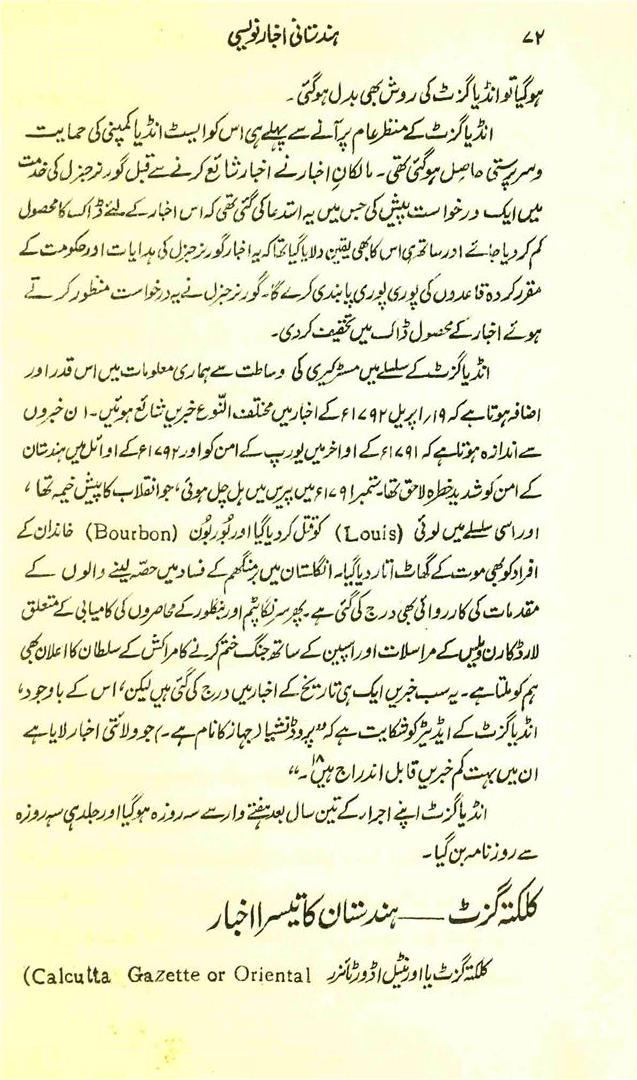 ۷۲ ہندستانی اخبار نویسی
ہوگیا تو انڈیا گزٹ کی روش بھی بدل ہوگئی۔
انڈیا گزٹ کے منظر عام پر آنے سے پہلے ہی اس کو ایسٹ انڈیا کمپنی کی حمایت
و سرپرستی حاصل ہوگئی تھی۔ مالکانِ اخبار نے اخبار شائع کرنے سے قبل گورنر جنرل کی خدمت
میں ایک درخواست پیش کی جس میں یہ استدعا کی گئی تھی کہ اس اخبار کے لئے ڈاک کا محصول
کم کردیا جائے اور ساتھ ہی اس کا بھی یقین دلایا گیا تھا کہ یہ اخبار گورنر جنرل کی ہدایات اور حکومت کے
مقرر کردہ قاعدوں کی پوری پوری پابندی کرے گا۔ گورنر جنرل نے یہ درخواست منظور کرتے
ہوئے اخبار کے محصول ڈاک میں تخفیف کردی۔
انڈیا گزٹ کے سلسلے میں مسٹر کیری کی وساطت سے ہماری معلومات میں اس قدر اور
اضافہ ہوتا ہے کہ ۱۹؍ اپریل ۱۷۹۲ء کے اخبار میں مختلف النّوع خبریں شائع ہوئیں۔ ان خبروں
سے اندازہ ہوتا ہے کہ ۱۷۹۱ء کے اواخر میں یورپ کے امن کو اور ۱۷۹۲ء کے اوائل میں ہندستان
کے امن کو شدید خطرہ لاحق تھا۔ ستمبر ۱۷۹۱ء میں پیرس میں ہل چل ہوئی، جو انقلاب کا پیش خیمہ تھا،
اور اسی سلسلے میں لوئی (Louis) کو قتل کردیا گیا اور بُوربُون (Bourbon) خاندان کے
افراد کو بھی موت کے گھاٹ اتار دیا گیا۔ انگلستان میں برمنگھم کے فساد میں حصّہ لینے والوں کے
مقدمات کی کارروائی بھی درج کی گئی ہے۔ پھر سرنگاپٹم اور بنگلور کے محاصروں کی کامیابی کے متعلق
لارڈ کارن ویلس کے مراسلات اور اسپین کے ساتھ جنگ ختم کرنے کا مراکش کے سلطان کا اعلان بھی
ہم کو ملتا ہے۔ یہ سب خبریں ایک ہی تاریخ کے اخبار میں درج کی گئی ہیں لیکن، اس کے باوجود،
انڈیا گزٹ کے ایڈیٹر کو شکایت ہے کہ "پروڈنشیا (جہاز کا نام ہے۔) جو ولائتی اخبار لایا ہے
ان میں بہت کم خبریں قابل اندراج ہیں۱۸۔"
انڈیا گزٹ اپنے اجرار کے تین سال بعد ہفتے وار سے سہ روزہ ہوگیا اور جلد ہی سہ روزہ
سے روزنامہ بن گیا۔
کلکتہ گزٹ — ہندستان کا تیسرا اخبار
کلکتہ گزٹ یا اورنٹیل اڈورٹائزر (Calcutta Gazette or Oriental